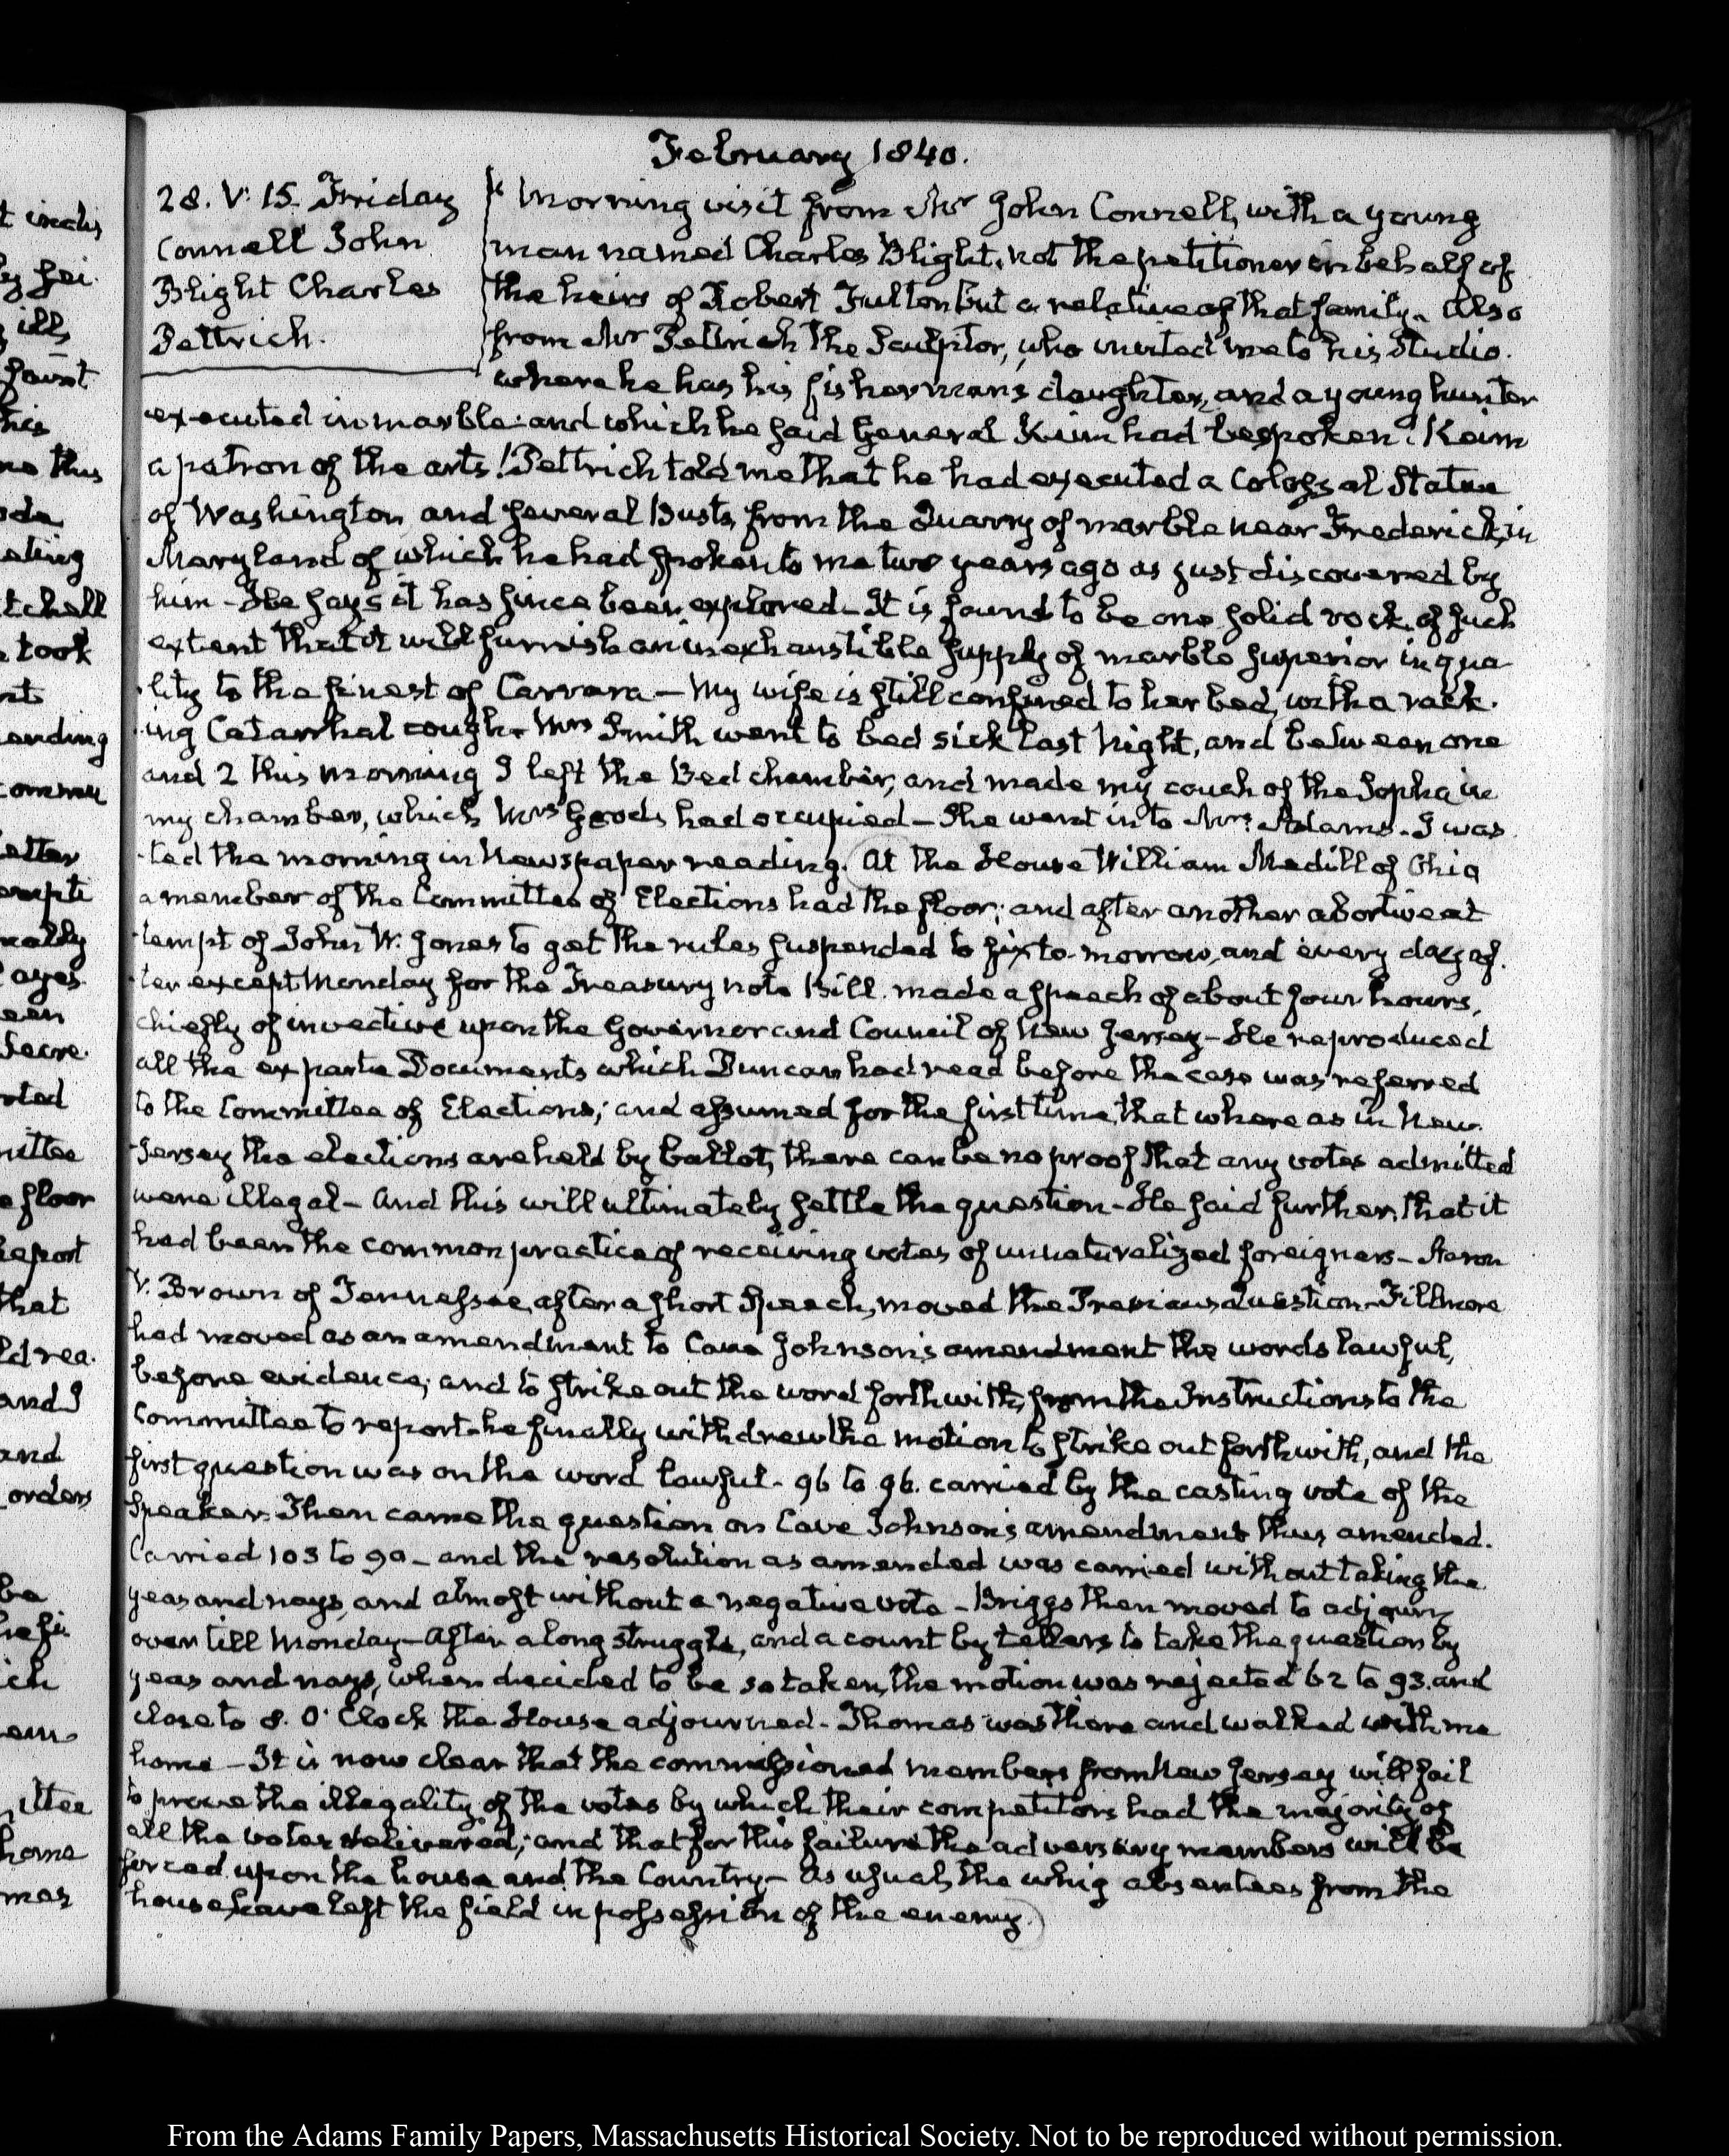 February 1840.
28. V: 15. Friday
Connell John
Blight Charles
Pettrich.
Morning visit from Mr John Connell, with a young
man named Charles Blight, not the petitioner in behalf of
the heirs of Robert Fulton but a relative of that family. Also
from Mr Pettrich the Sculptor, who invited me to his Studio.
where he has his fisherman's daughter, and a young hunter
executed in marble: and which he said General Keim had bespoken. Keim
a patron of the arts! Pettrich told me that he had executed a Colossal Statue
of Washington and several Busts, from the Quarry of marble near Frederick, in
Maryland of which he had spoken to me two years ago as just discovered by
him - He says it has since been explored - It is found to be one solid rock, of such
extent that it will furnish an inexhaustible supply of marble superior in qua-
lity to the finest of Carrara - My wife is still confined to her bed, with a rack-
ing Catarrhal cough. Mrs Smith went to bed sick last Night, and between one
and 2 this morning I left the Bed chamber, and made my couch of the Sopha in
my chamber, which Mrs Goods had occupied - She went in to Mrs Adams. I was-
ted the morning in Newspaper reading. At the House William Medill of Ohio
a member of the Committee of Elections had the floor; and after another abortive at-
tempt of John W. Jones to get the rules suspended to fix to-morrow, and every day af-
ter except Monday for the Treasury note Bill. made a speech of about four hours,
chiefly of invective upon the Governor and Council of New Jersey - He reproduced
all the ex parte Documents which Duncan had read before the case was referred
to the Committee of Elections; and assumed for the first time, that where as in New-
Jersey the elections are held by ballot, there can be no proof that any votes admitted
were illegal - And this will ultimately settle the question - He said further, that it
had been the common practice of receiving votes of unnaturalized foreigners - Aaron
V. Brown of Tennessee, after a short Speech, moved the Previous Question - Fillmore
had moved as an amendment to Cave Johnson's amendment the words lawful,
before evidence; and to strike out the word forthwith, from the Instructions to the
Committee to report - he finally withdrew the motion to strike out forthwith, and the
first question was on the word lawful - 96 to 96. carried by the casting vote of the
Speaker. Then came the question on Cave Johnson's amendment thus amended.
Carried 103 to 90 - and the resolution as amended was carried without taking the
yeas and nays, and almost without a negative vote - Briggs then moved to adjourn
over till Monday - After a long struggle, and a count by tellers to take the question by
yeas and nays, when decided to be so taken, the motion was rejected 62 to 93. and
close to 8. O'Clock the House adjourned - Thomas was there and walked with me
home - It is now clear that the commissioned members from New Jersey will fail
to prove the illegality of the votes by which their competitors had the majority of
all the votes delivered; and that for this failure the adversary members will be
forced upon the house and the Country - As usual, the whig absentees from the
house have left the field in possession of the enemy.
From the Adams Family Papers, Massachusetts Historical Society. Not to be reproduced without permission.